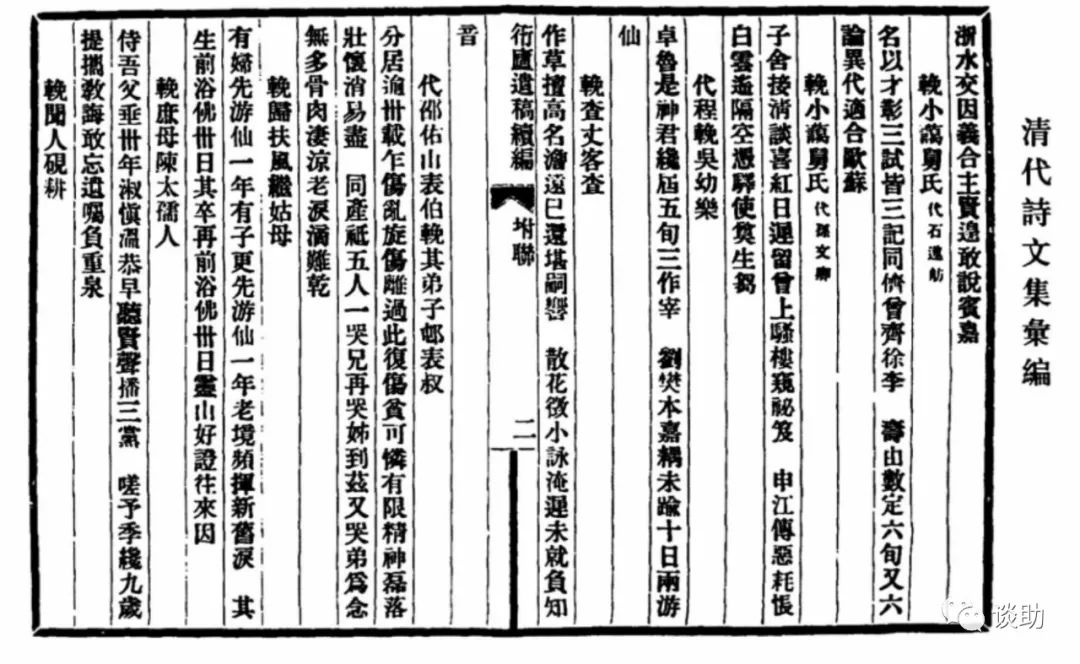 清代詩文集彙編
浙水交因義合主賢遑敢說賓嘉
輓小藹舅氏 代石蓮舫
名以才彰三試皆三記同儕曾齊徐李 壽由數定六旬又六
論異代適合歐蘇
輓小藹舅氏 代孫文卿
子舍接清談喜紅日遲留曾上騷樓窺祕笈 申江傳惡耗悵
白雲遙隔空憑驛使奠生芻
代程輓吳幼樂
卓魯是神君纔屆五旬三作宰 劉樊本嘉耦未踰十日兩游
仙
輓查丈客查
作草擅高名澹遠已還堪嗣響 散花徵小詠淹遲未就負知
衎廬遺稿續編 坿聯 二
音
代邵佑山表伯輓其弟子邨表叔
分居渝卅載乍傷亂旋傷離過此復傷貧可憐有限精神磊落
壯懷消易盡 同產祗五人一哭兄再哭姊到茲又哭弟爲念
無多骨肉淒涼老淚滴難乾
輓歸扶風繼姑母
有婦先游仙一年有子更先游仙一年老境頻揮新舊淚 其
生前浴佛卅日其卒再前浴佛卅日靈山好證往來因
輓庶母陳太孺人
侍吾父垂卅年淑愼溫恭早聽賢聲播三黨 嗟予季纔九歲
提攜敎誨敢忘遺囑負重泉
輓聞人硯耕
谈助